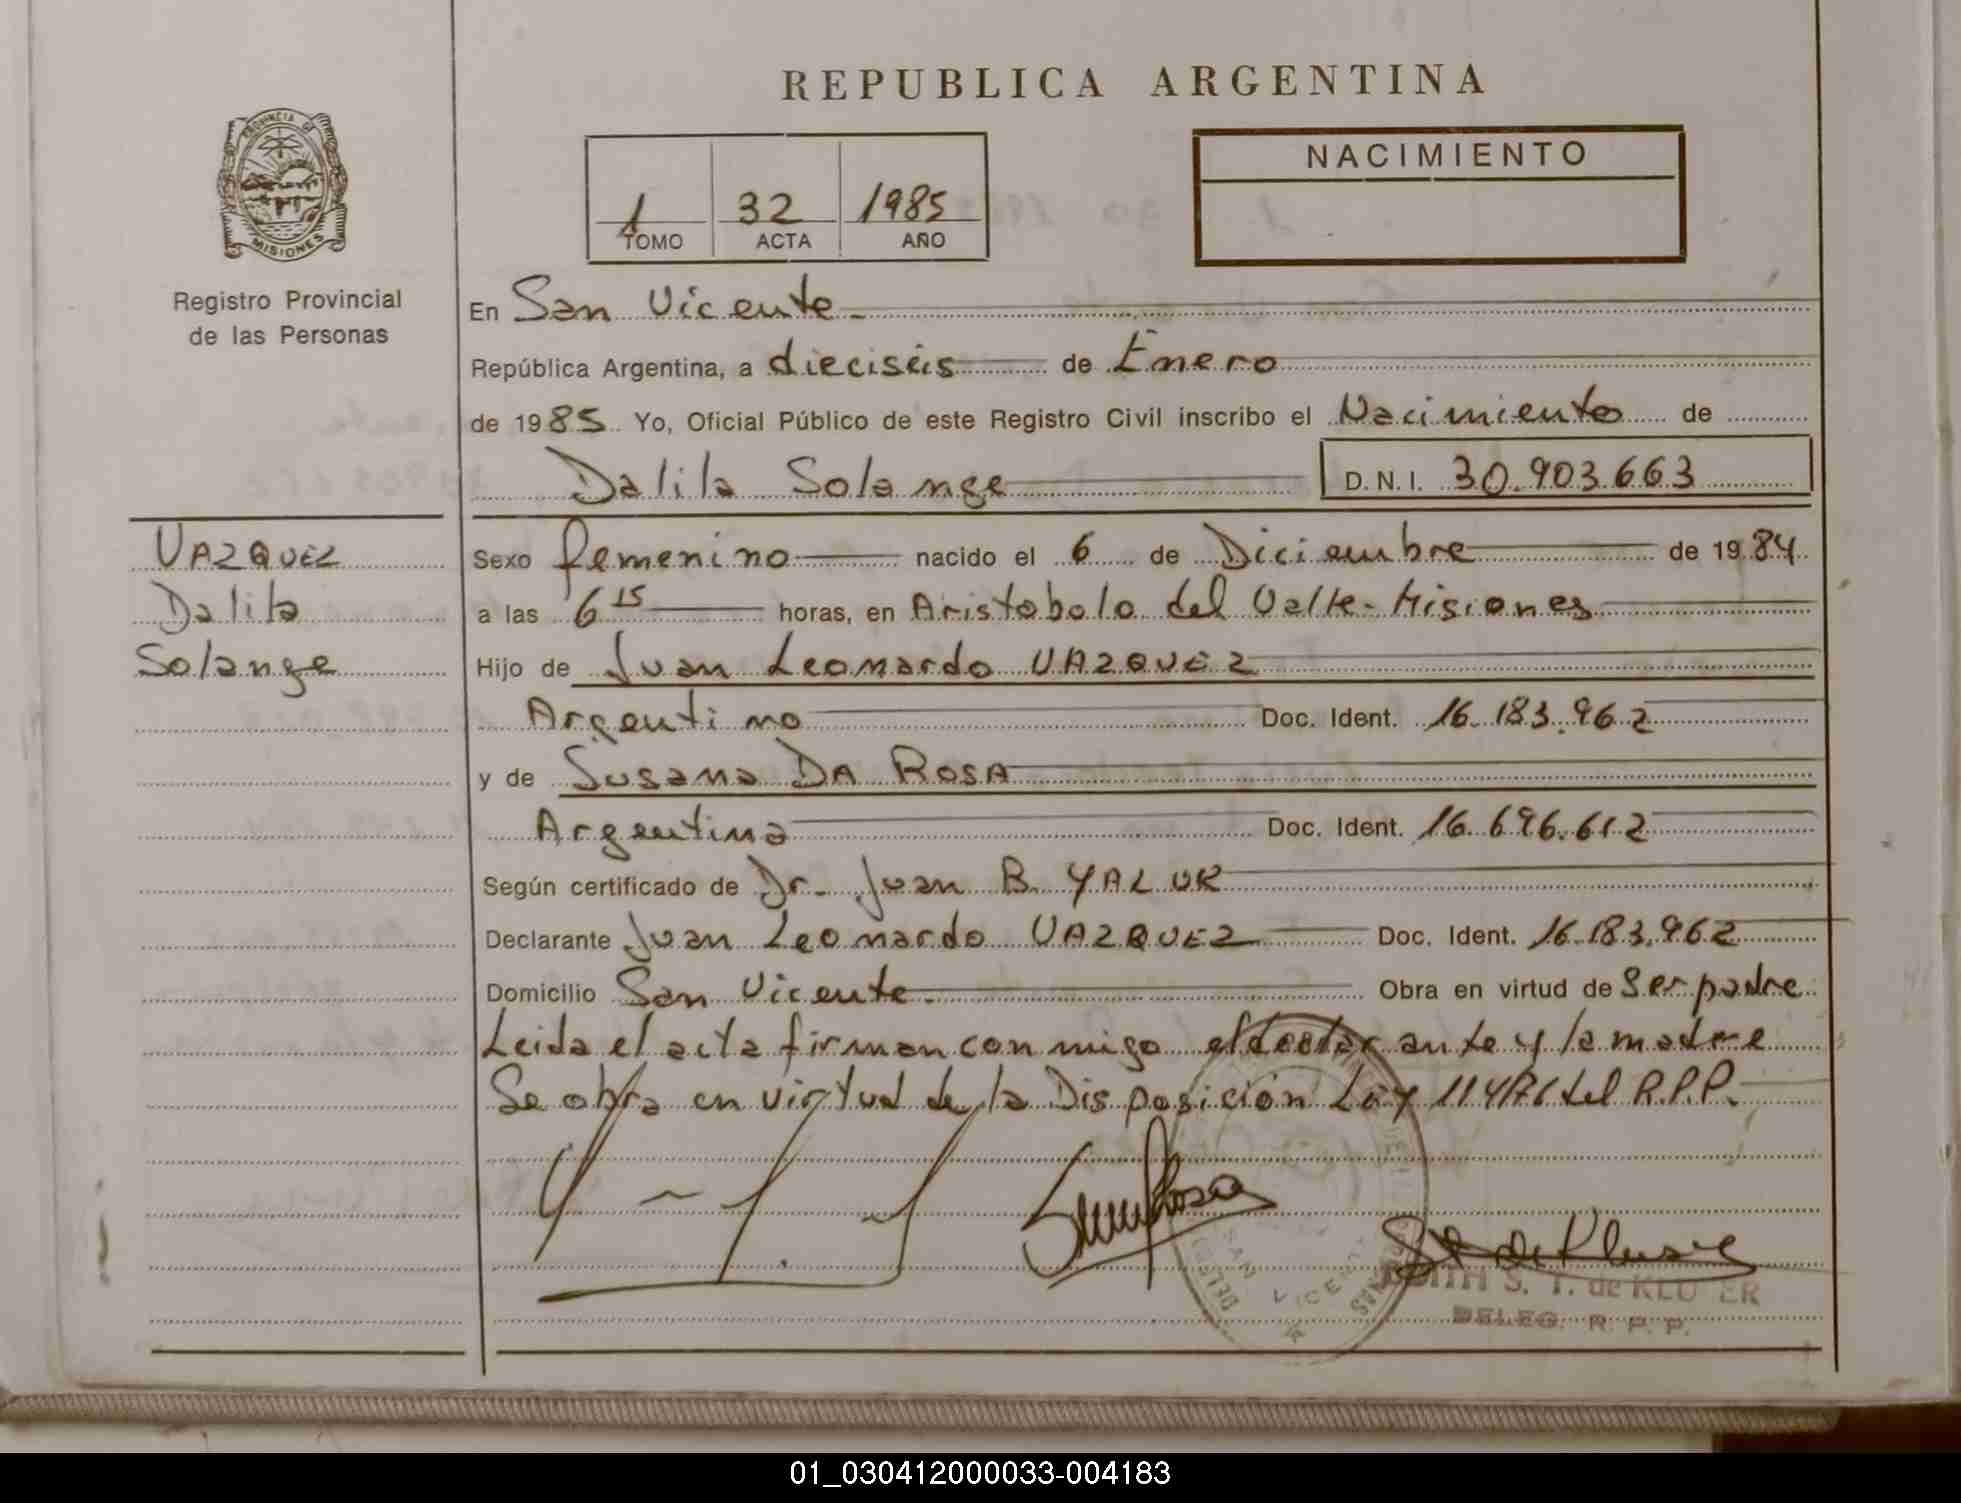 REPUBLICA ARGENTINA
PROVINCIA DE
MISIONES
Registro Provincial
de las Personas
1 32 1985
TOMO ACTA AÑO
NACIMIENTO
En San Vicente.
República Argentina, a dieciséis de Enero
de 1985. Yo, Oficial Público de este Registro Civil inscribo el Nacimiento de
Dalila Solange D.N.I. 30.903.663
VAZQUEZ
Dalila
Solange
Sexo femenino nacido el 6 de Diciembre de 1984
a las 6 15 horas, en Aristobolo del Valle-Misiones
Hijo de Juan Leonardo VAZQUEZ
Argentino Doc. Ident. 16.183.962
y de Susana DA ROSA
Argentina Doc. Ident. 16.696.612
Según certificado de Dr. Juan B. YALUR
Declarante Juan Leonardo VAZQUEZ Doc. Ident. 16.183.962
Domicilio San Vicente. Obra en virtud de Ser padre
Leida el acta firman conmigo el declarante y la madre
Se obra en virtud de la Disposición Ley 114/76 del R.P.P.
SAN VICENTE
S. T. de KLU ER
DELEG. R. P. P.
01_030412000033-004183